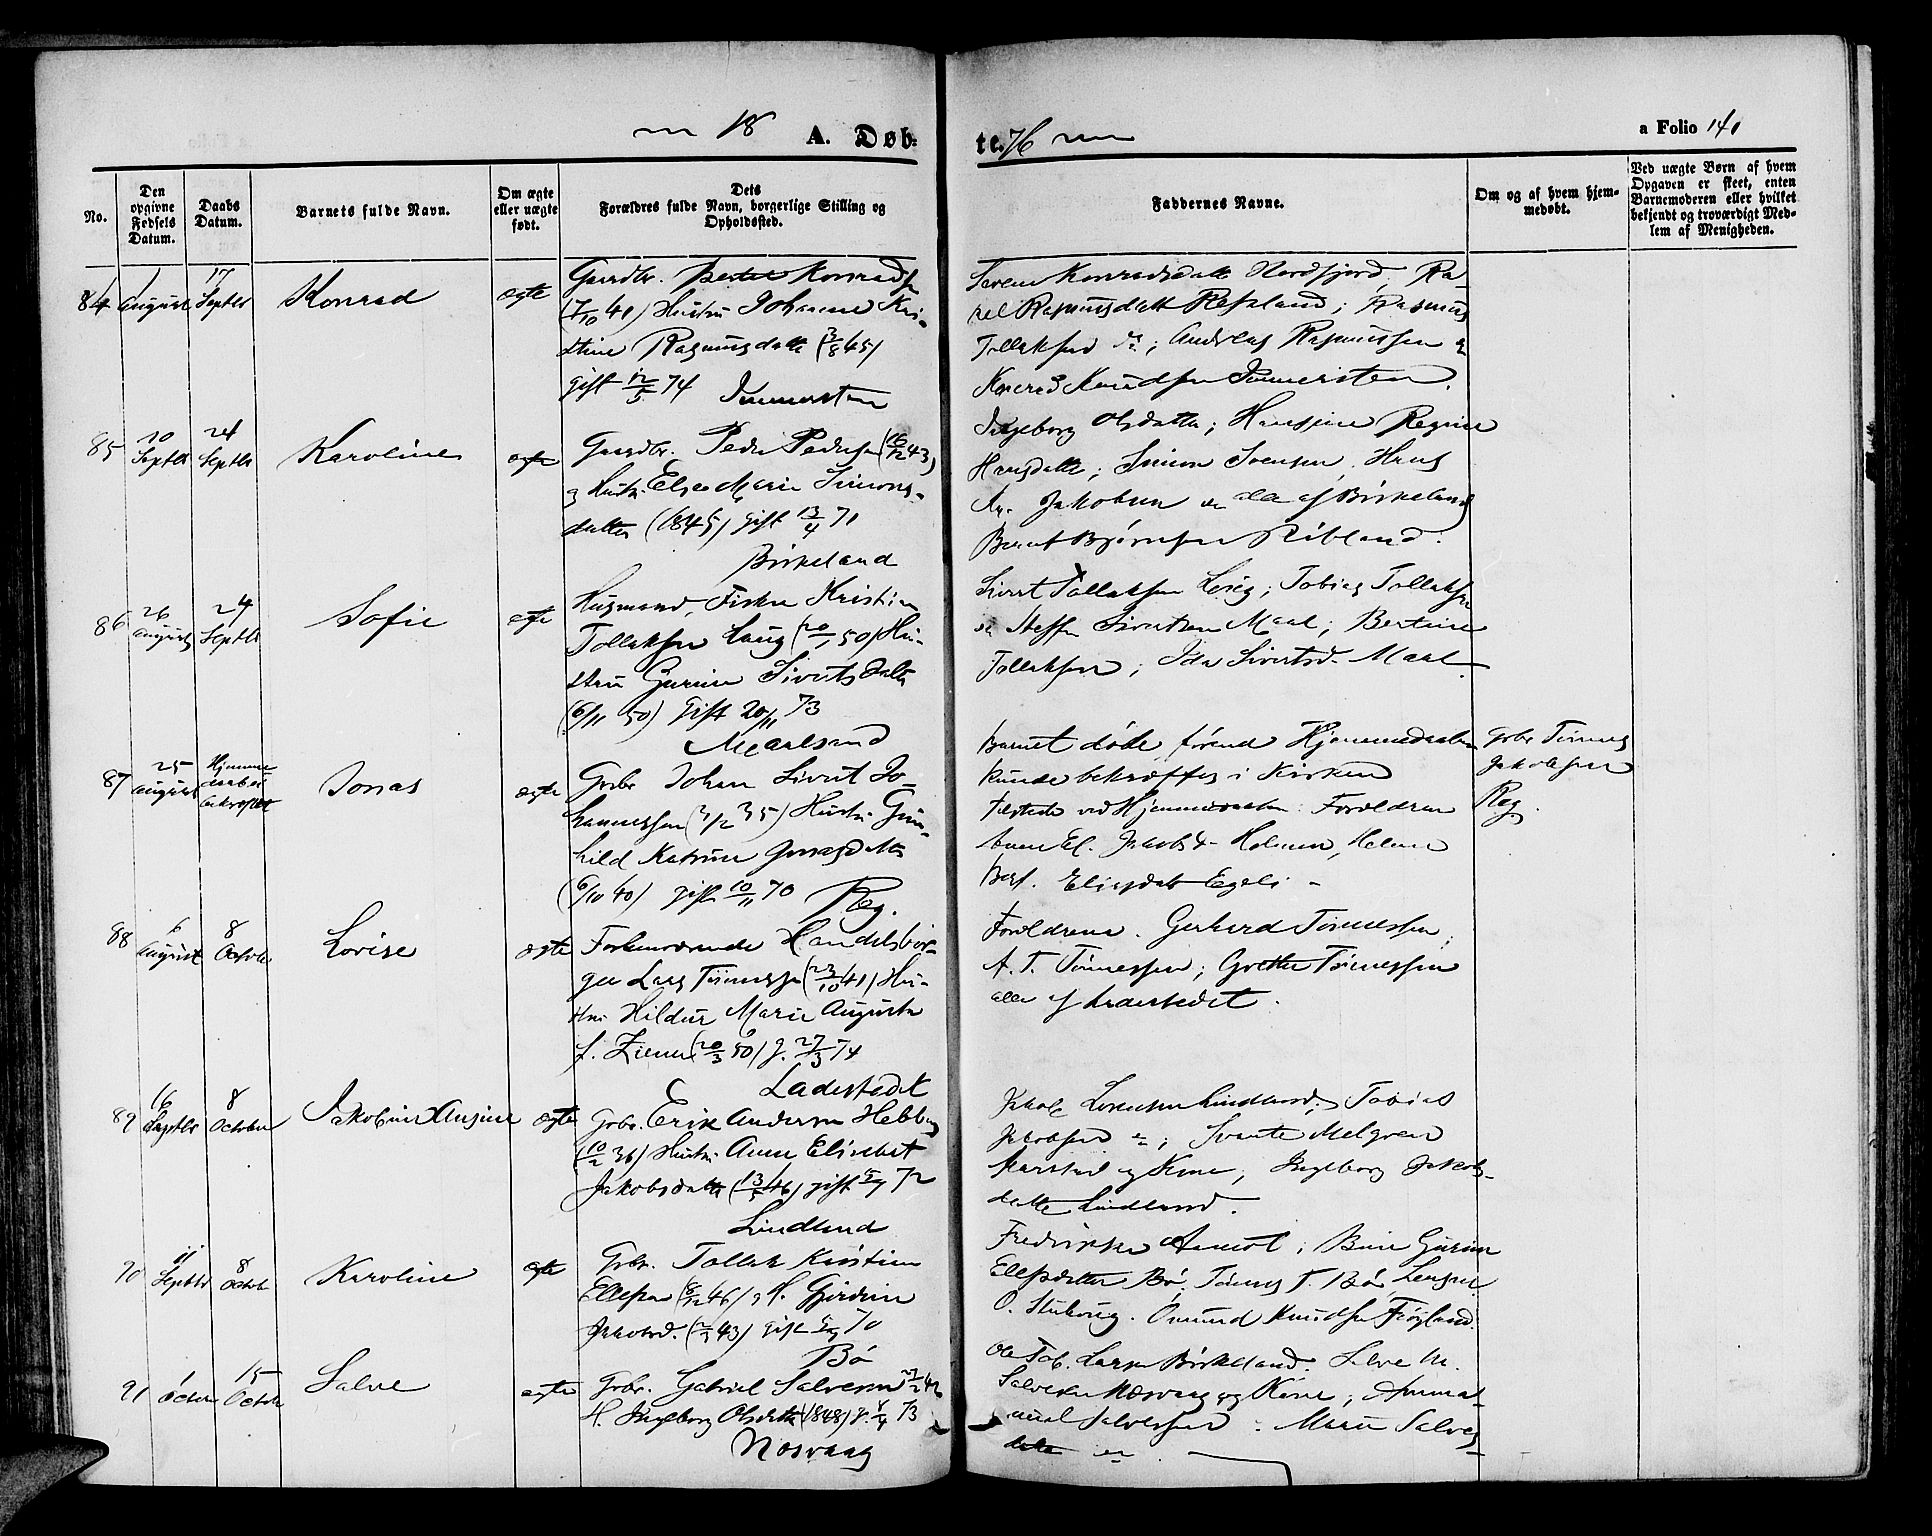 18 A. Døb-
te. 76
a Folio 141
No.
Den opgivne Fødsels Datum.
Daabs Datum.
Barnets fulde Navn.
Om ægte eller uægte født.
Dets Forældres fulde Navn, borgerlige Stilling og Opholdssted.
Faddernes Navne.
Om og af hvem hjem-
medøbt.
Ved uægte Børn af hvem
Opgaven er skeet, enten
Barnemoderen eller hvilket
bekjendt og troværdigt Med-
lem af Menigheden.
84
1 August
17 Septbr
Konrad
ægte
Gaardbr. Peder Konradsen
(7/10 41) Hustru Johanne Kri-
stine Rasmusdatter (3/8 45)
gift 12/5 74
Immersten
Konradsdatt Nordfjord, Ra-
kel Rasmusdatt Refsland; Rasmus
Tollaksen do; Andreas Rasmussen
Konrad Knudsen Immersten.
85
20 Septbr
24 Septbr
Karoline
ægte
Gaardbr. Peder Pedersen (16/12 43)
og Hustr. Else Marie Simons-
datter (1845) gift 13/4 71
Birkeland
Ingeborg Olsdatter; Hansine Regine
Hansdatter; Simon Svensen, Hans
Jakobsen alle af Birkeland
Bernt Bjørnsen Ribland.
86
26 August
24 Septbr
Sofie
ægte
Husmand, Fisker Kristian
Tollaksen Laug (20/1 50) Hu-
stru Gurine Sivertsdatter
(6/11 50) gift 20/11 73
Maalsand
Sivert Tollaksen; Tobias Tollaksen
Steffen Sivertsen Maal; Bertine
Tollaksen; Ida Sivertsd. Maal
87
25 August
Hjemme
daaben
bekræftet
Jonas
ægte
Grbr Johan Sivert Jo-
hannessen (3/2 35) Hustr. Gun-
hild Katrine Jonasdatter
(6/10 40) gift 10/11 70
Reg.
Barnet døde, førend Hjemmedaaben
kunde bekræftes i Kirken
tilstede ved Hjemmedaaben: Forældrene
Anne El. Jakobsd. Holmen, Helene
Berf. Eliasdatt Egeli
Grbr Tønnes
Jakobsen
Reg.
88
6 August
8 Octobr
Lovise
ægte
Forhenværende Handelsbor-
ger Lars Tønnessen (23/10 41) Hu-
stru Hildur Marie Augusta
f. Ziener (20/3 50) g. 27/3 74
Ladestedet
Forældrene. Gerhard Tønnessen;
A. T. Tønnessen; Grethe Tønnessen
alle af Ladestedet.
89
16 Septbr
8 October
Jakobine Ansine
ægte
Grbr. Erik Andersen
(10/2 36) Hustr. Anne Elisebet
Jakobsdatter (13/5 46) gift 72
Lindland
Jakob Lorensen Lindland; Tobias
Jakobsen; Svante Melgren
og Kone; Ingeborg Jakobs-
datter Lindland.
90
11 Septbr
8 Octobr
Karoline
ægte
Grbr. Tollak Kristian
Ellefsen (8/12 46) og H.
Jakobsd. (2/3 43) gift 70
Bø
Fredrikke; Gurine
Ellefsdatter Bø. Tønnes T. Bø,
O. Stuborg. Omund Knudsen Frøyland.
91
1 Octbr
15 Octbr
Salve
ægte
Grbr. Gabriel Salvesen
H. Ingeborg Olsdatt (1848) g. 73
Nesvaag
Ole Tob. Larsen Birkeland. Salve M.
Salvesen Nesvaag og Kone;
Salvesen. Marie Salves-
datter